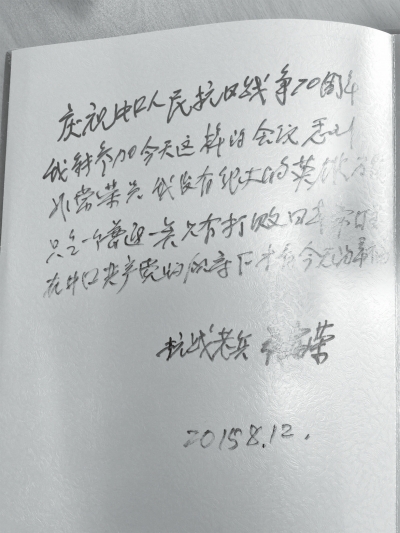 庆祝中国人民抗日战争70周年
我能参加今天这样的会议感到
非常荣幸 我没有很大的英雄
只是一个普通一兵 只有打败日本
在中国共产党的领导下才有今天的幸福
抗战老兵 荣
2015 8.12.